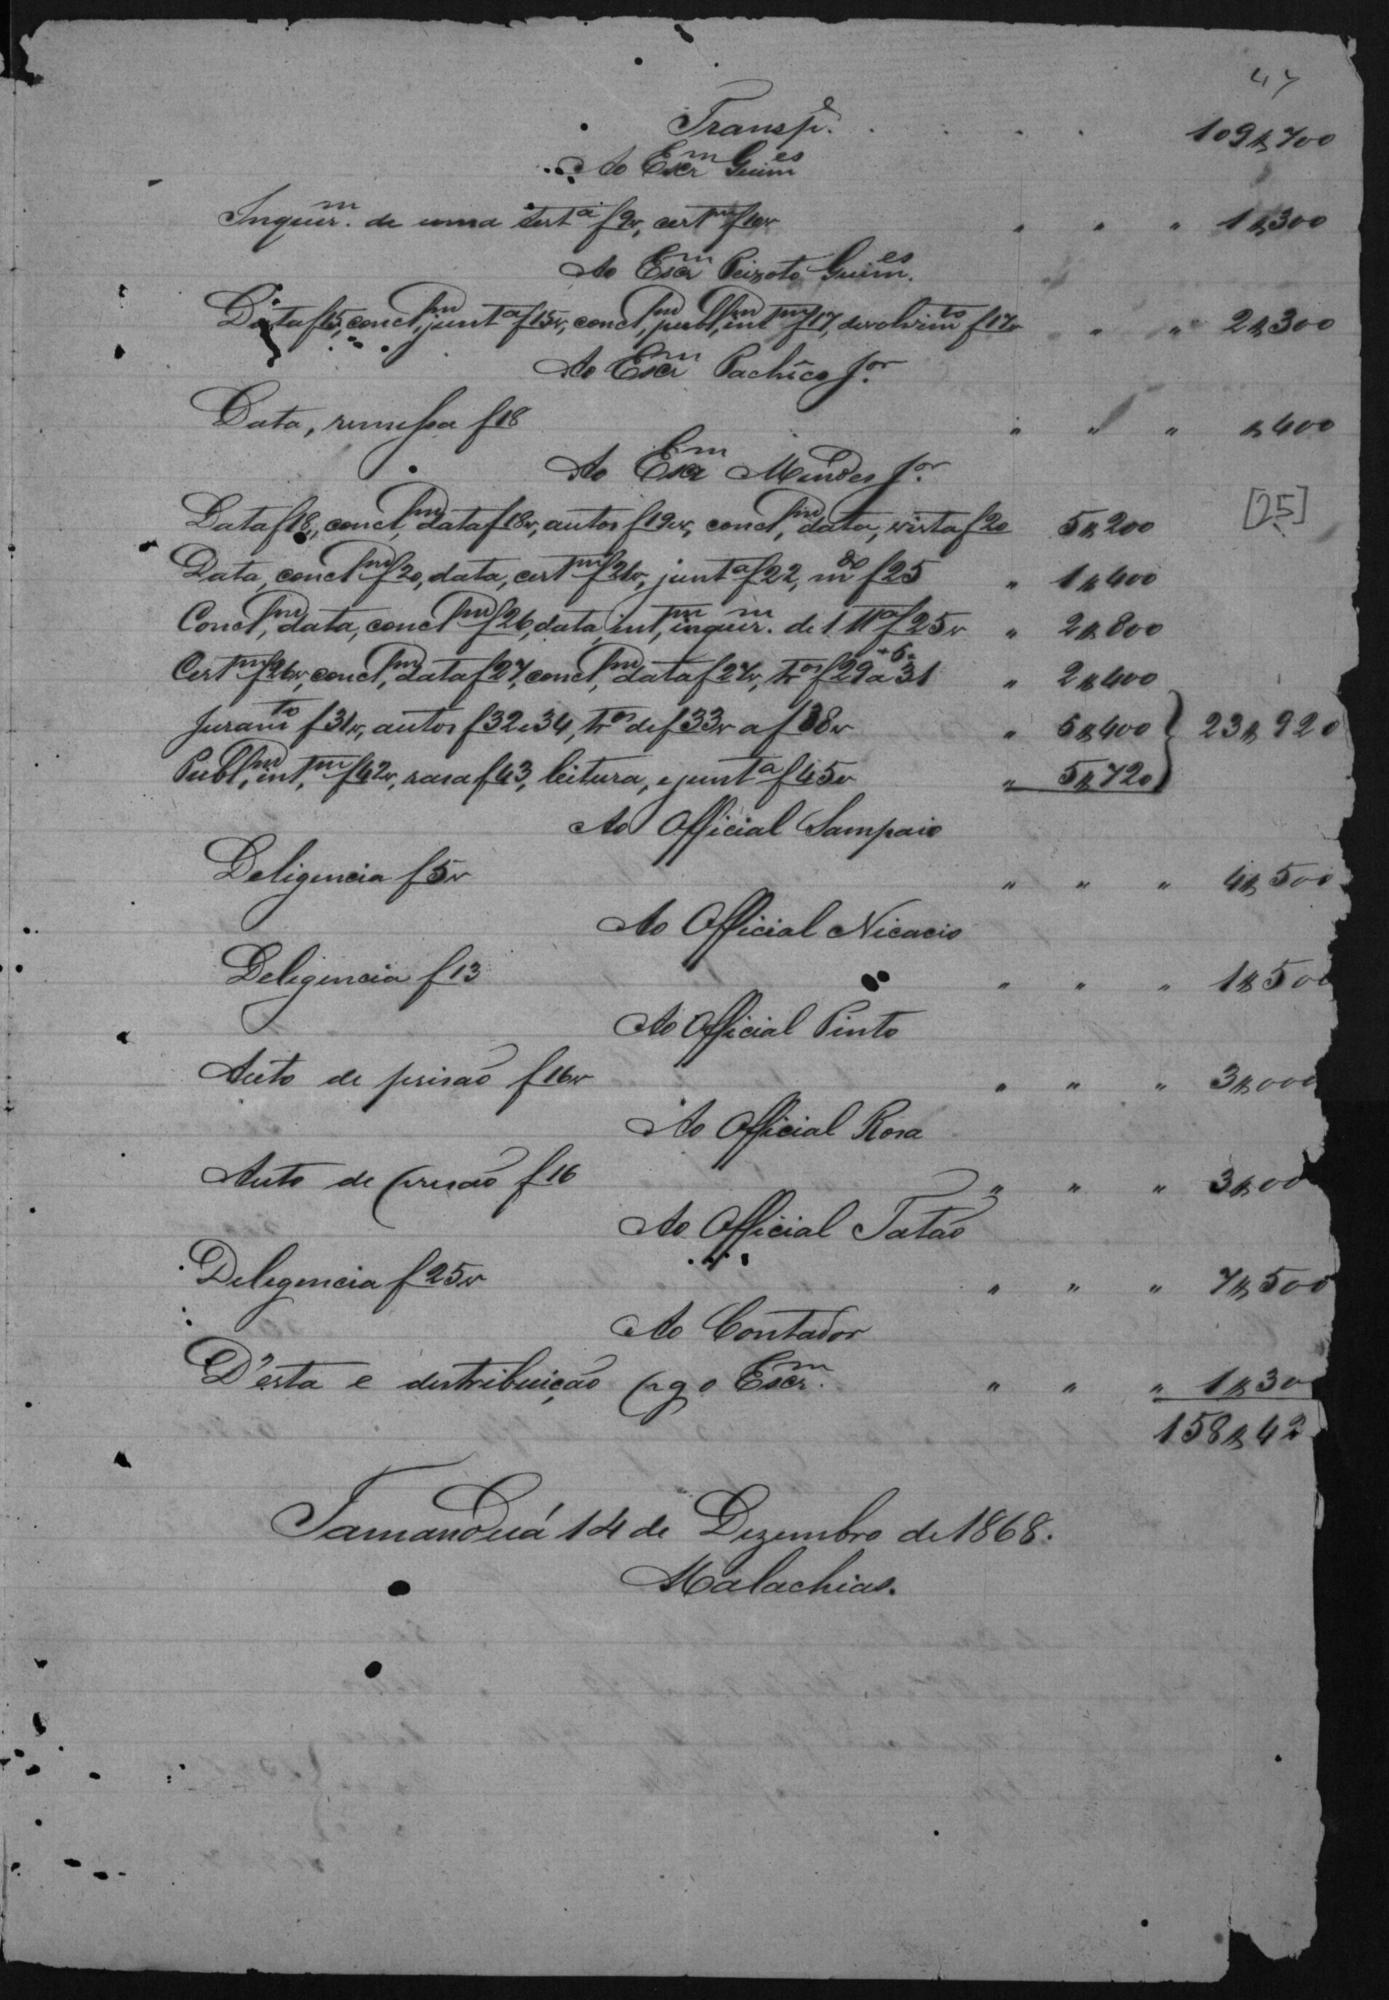 47
Transp.e . . . . 109$700
Ao Escr.m Guim.es
Inquir.m de uma test.a f 9v, cert.m f 10v " " " 1$300
Ao Escr.m Peixoto Guim.es
Data f 15, concl.m, junt.a f 15v, concl.m, publ.m, int.m f 17, devolvim.to f 17v " " 2$300
Ao Escr.m Pachêco J.or
Data, remessa f 18 " " " $400
Ao Escr.m Mendes J.or
Data f 18, concl.m, data f 18v, autos f 19v, concl.m, data, vista f 20 5$200 [25]
Data, concl.m f 20, data, cert.m f 21v, junt.a f 22, m.do f 25 " 1$400
Concl.m, data, concl.m f 26, data, int.m, inquir.m de 1 T.a f 25v " 2$800
Cert.m f 26v, concl.m, data f 27, concl.m, data f 27v, tr.os f 29 a 31 " 2$400
Juram.to f 31v, autos f 32 e 34, tr.os de f 33v a f 38v " 6$400 } 23$920
Publ.m, int.m f 42v, rasa f 43, leitura, e junt.a f 45v " 5$720
Ao Official Sampaio
Deligencia f 5v " " " 4$500
Ao Official Nicacio
Deligencia f 13 " " " 1$500
Ao Official Pinto
Auto de prisão f 16v " " " 3$000
Ao Official Rosa
Auto de prisão f 16 " " " 3$00
Ao Official Tatão
Deligencia f 25v " " " 7$500
Ao Contador
D'esta e distribuição pg o Escr.m " " " 1$30
158$42
Tamanduá 14 de Dezembro de 1868.
Malachias.